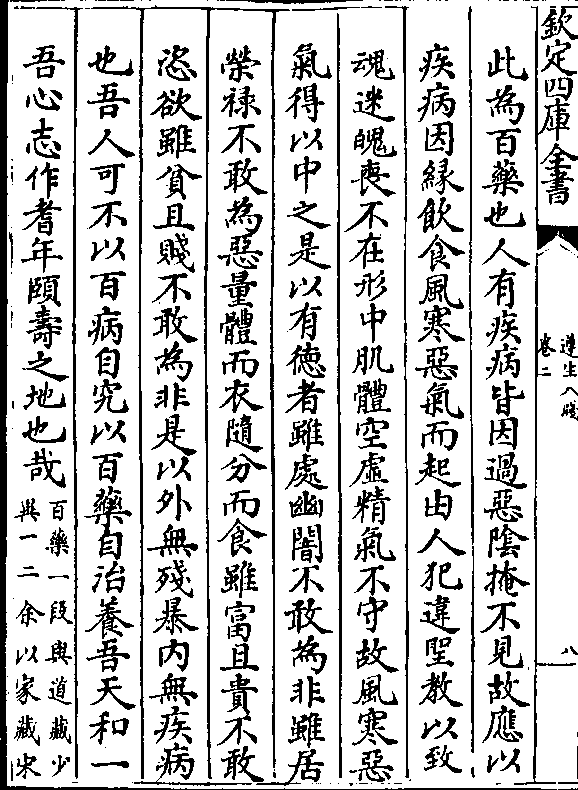 欽定四庫全書
遵生八牋
卷二
八
此為百藥也人有疾病皆因過惡陰掩不見故應以
疾病因緣飲食風寒惡氣而起由人犯違聖教以致
魂迷魄喪不在形中肌體空虛精氣不守故風寒惡
氣得以中之是以有德者雖處幽闇不敢為非雖居
榮祿不敢為惡量體而衣隨分而食雖富且貴不敢
恣欲雖貧且賤不敢為非是以外無殘暴內無疾病
也吾人可不以百病自究以百藥自治養吾天和一
吾心志作耆年頤壽之地也哉
百藥一段與道藏少
異一二余以家藏宋